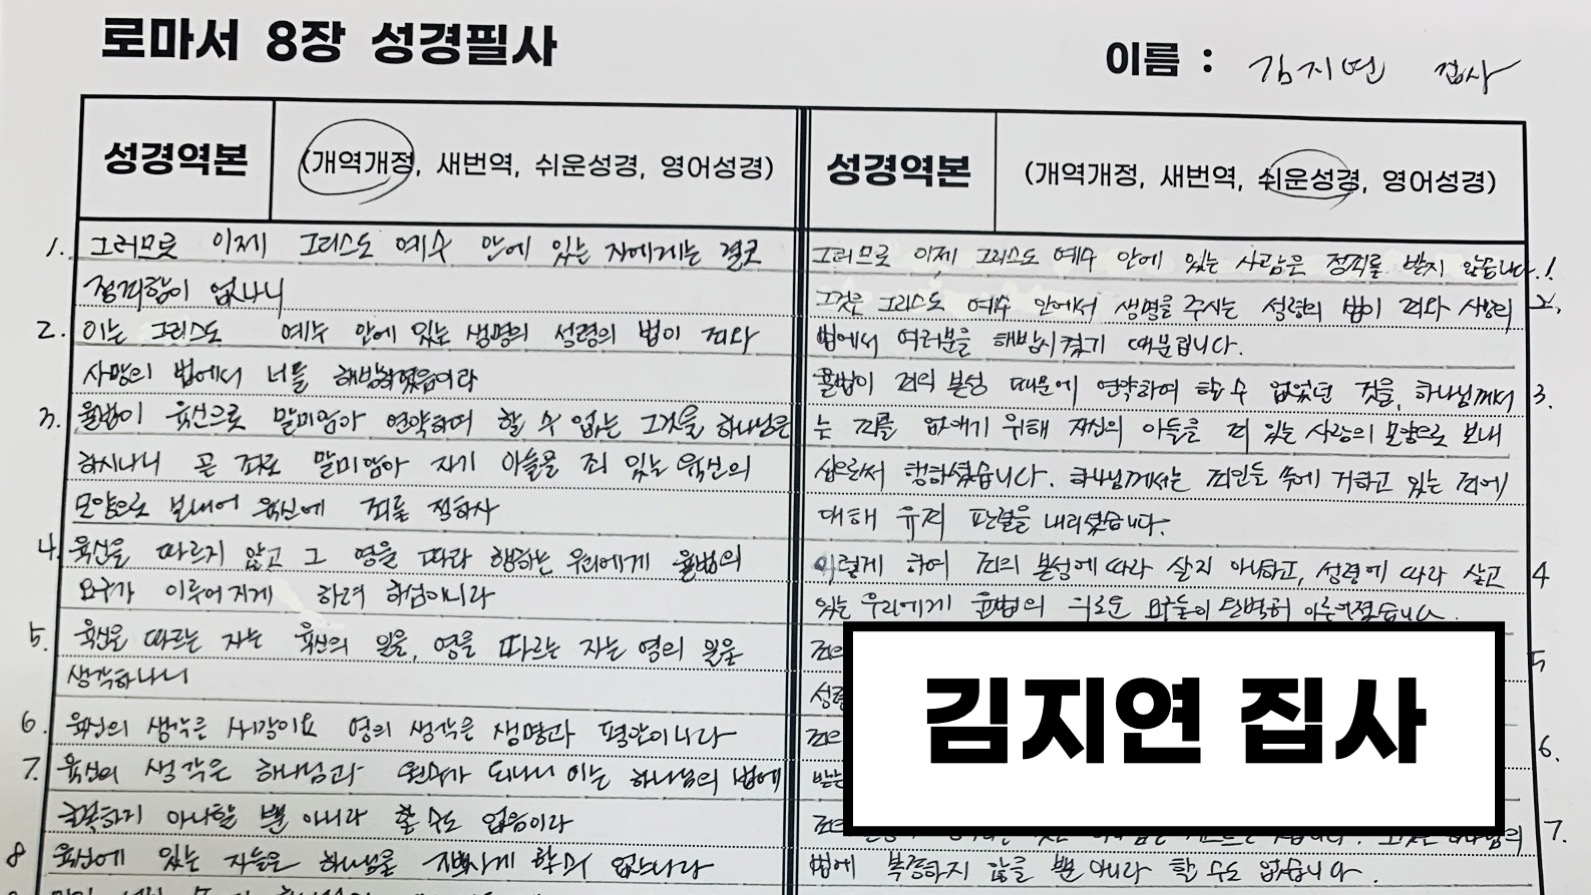 로마서 8장 성경필사
이름 : 김지연 집사
성경역본
(개역개정, 새번역, 쉬운성경, 영어성경)
1. 그러므로 이제 그리스도 예수 안에 있는 자에게는 결코
정죄함이 없나니
2. 이는 그리스도 예수 안에 있는 생명의 성령의 법이 죄와
사망의 법에서 너를 해방하였음이라
3. 율법이 육신으로 말미암아 연약하여 할 수 없는 그것을 하나님은
하시나니 곧 죄로 말미암아 자기 아들을 죄 있는 육신의
모양으로 보내어 육신에 죄를 정하사
4. 육신을 따르지 않고 그 영을 따라 행하는 우리에게 율법의
요구가 이루어지게 하려 하심이니라
5. 육신을 따르는 자는 육신의 일을, 영을 따르는 자는 영의 일을
생각하나니
6. 육신의 생각은 사망이요 영의 생각은 생명과 평안이니라
7. 육신의 생각은 하나님과 원수가 되나니 이는 하나님의 법에
굴복하지 아니할 뿐 아니라 할 수도 없음이라
8 육신에 있는 자들은 하나님을 기쁘시게 할 수 없느니라
성경역본
(개역개정, 새번역, 쉬운성경, 영어성경)
그러므로 이제 그리스도 예수 안에 있는 사람은 정죄를 받지 않습니다. 1
그것은 그리스도 예수 안에서 생명을 주시는 성령의 법이 죄와 사망의 2.
법에서 여러분을 해방시켰기 때문입니다.
율법이 죄의 본성 때문에 연약하여 할 수 없었던 것을, 하나님께서 3.
는 죄를 없애기 위해 자신의 아들을 죄 있는 사람의 모양으로 보내
심으로써 행하셨습니다. 하나님께서는 죄인들 속에 거하고 있는 죄에
대해 유죄 판결을 내리셨습니다.
이렇게 하여 죄의 본성에 따라 살지 아니하고, 성령에 따라 살고 4
있는 우리에게 율법의 의로운 요구들이 완벽히 이루어졌습니다.
죄의 5
성령
죄의 6.
받는
죄의 7.
법에 복종하지 않을 뿐 아니라 할 수도 없습니다.
김지연 집사